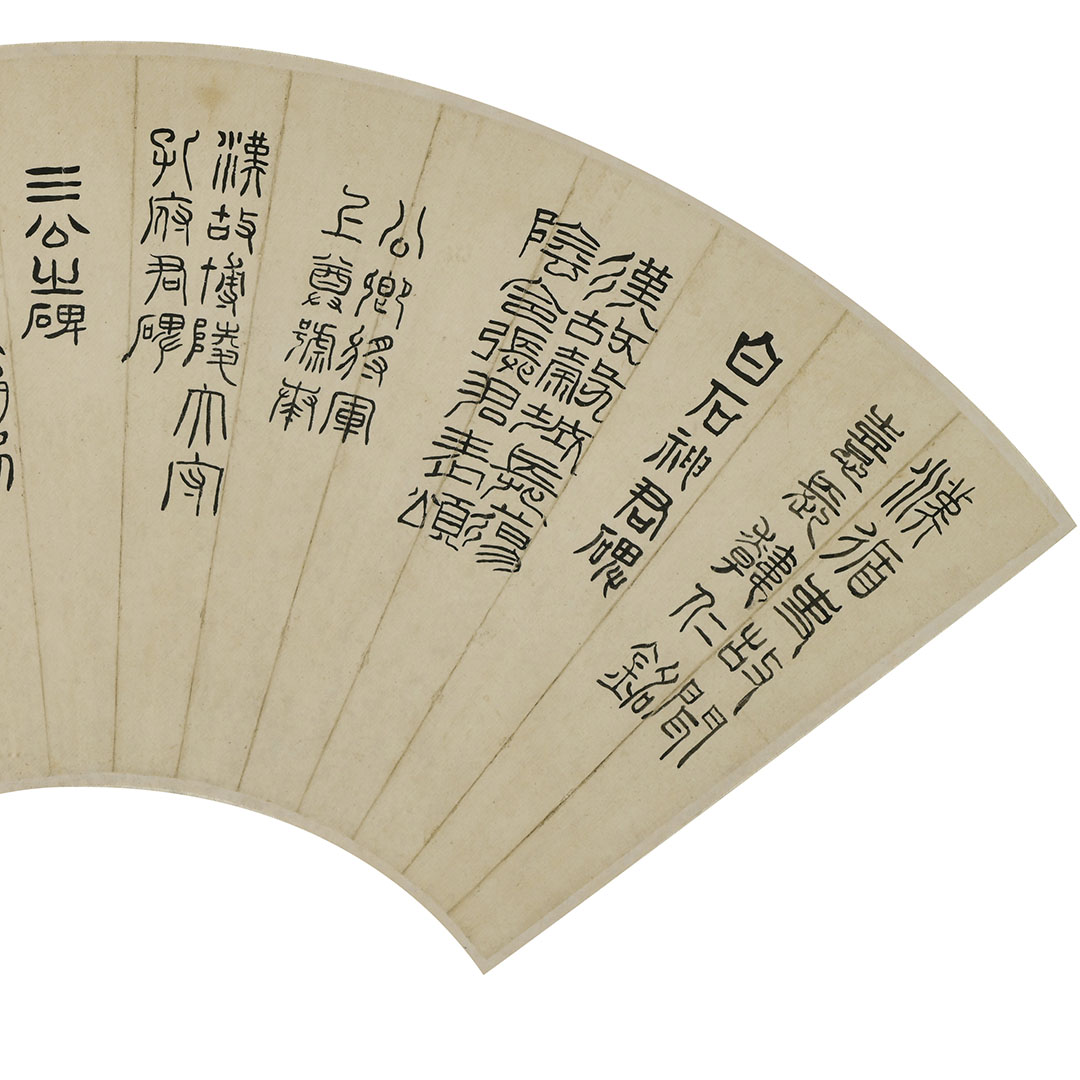 漢循吏故聞
憙長韓仁銘
白石神君碑
漢故穀城長蕩
陰令張君表頌
公卿將軍
上尊號奏
漢故博陵太守
孔府君碑
三公之碑